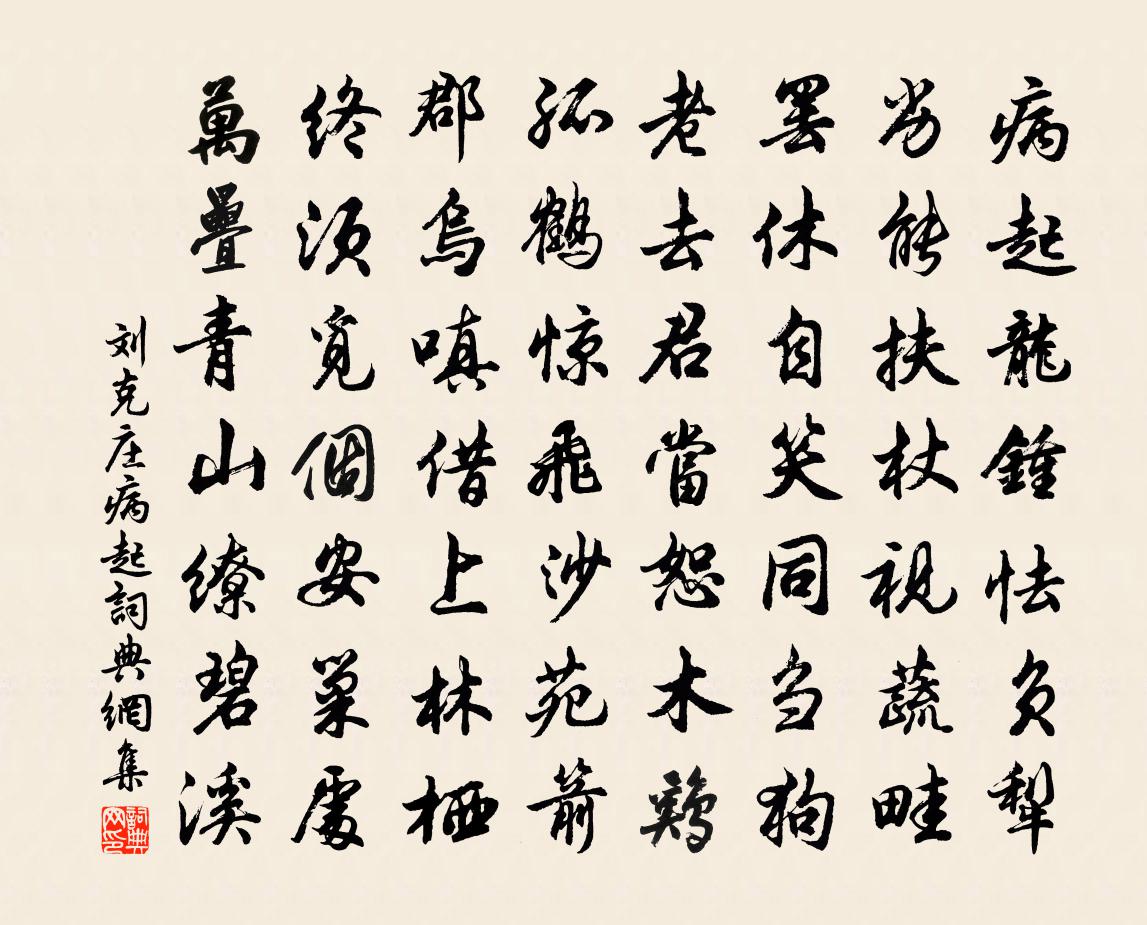 病起龍鍾怯負犁
劣能扶杖視蔬畦
罷休自笑同芻狗
老去君當恕木鷄
孤鶴惊飛沙苑箭
郡烏嗔借上林栖
終須覓個安巢處
萬疊青山繚碧溪
刘克庄病起詞典網集
詞典网印